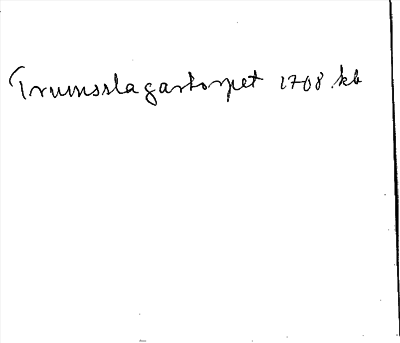 Trumsslagartorpet 1708 kb